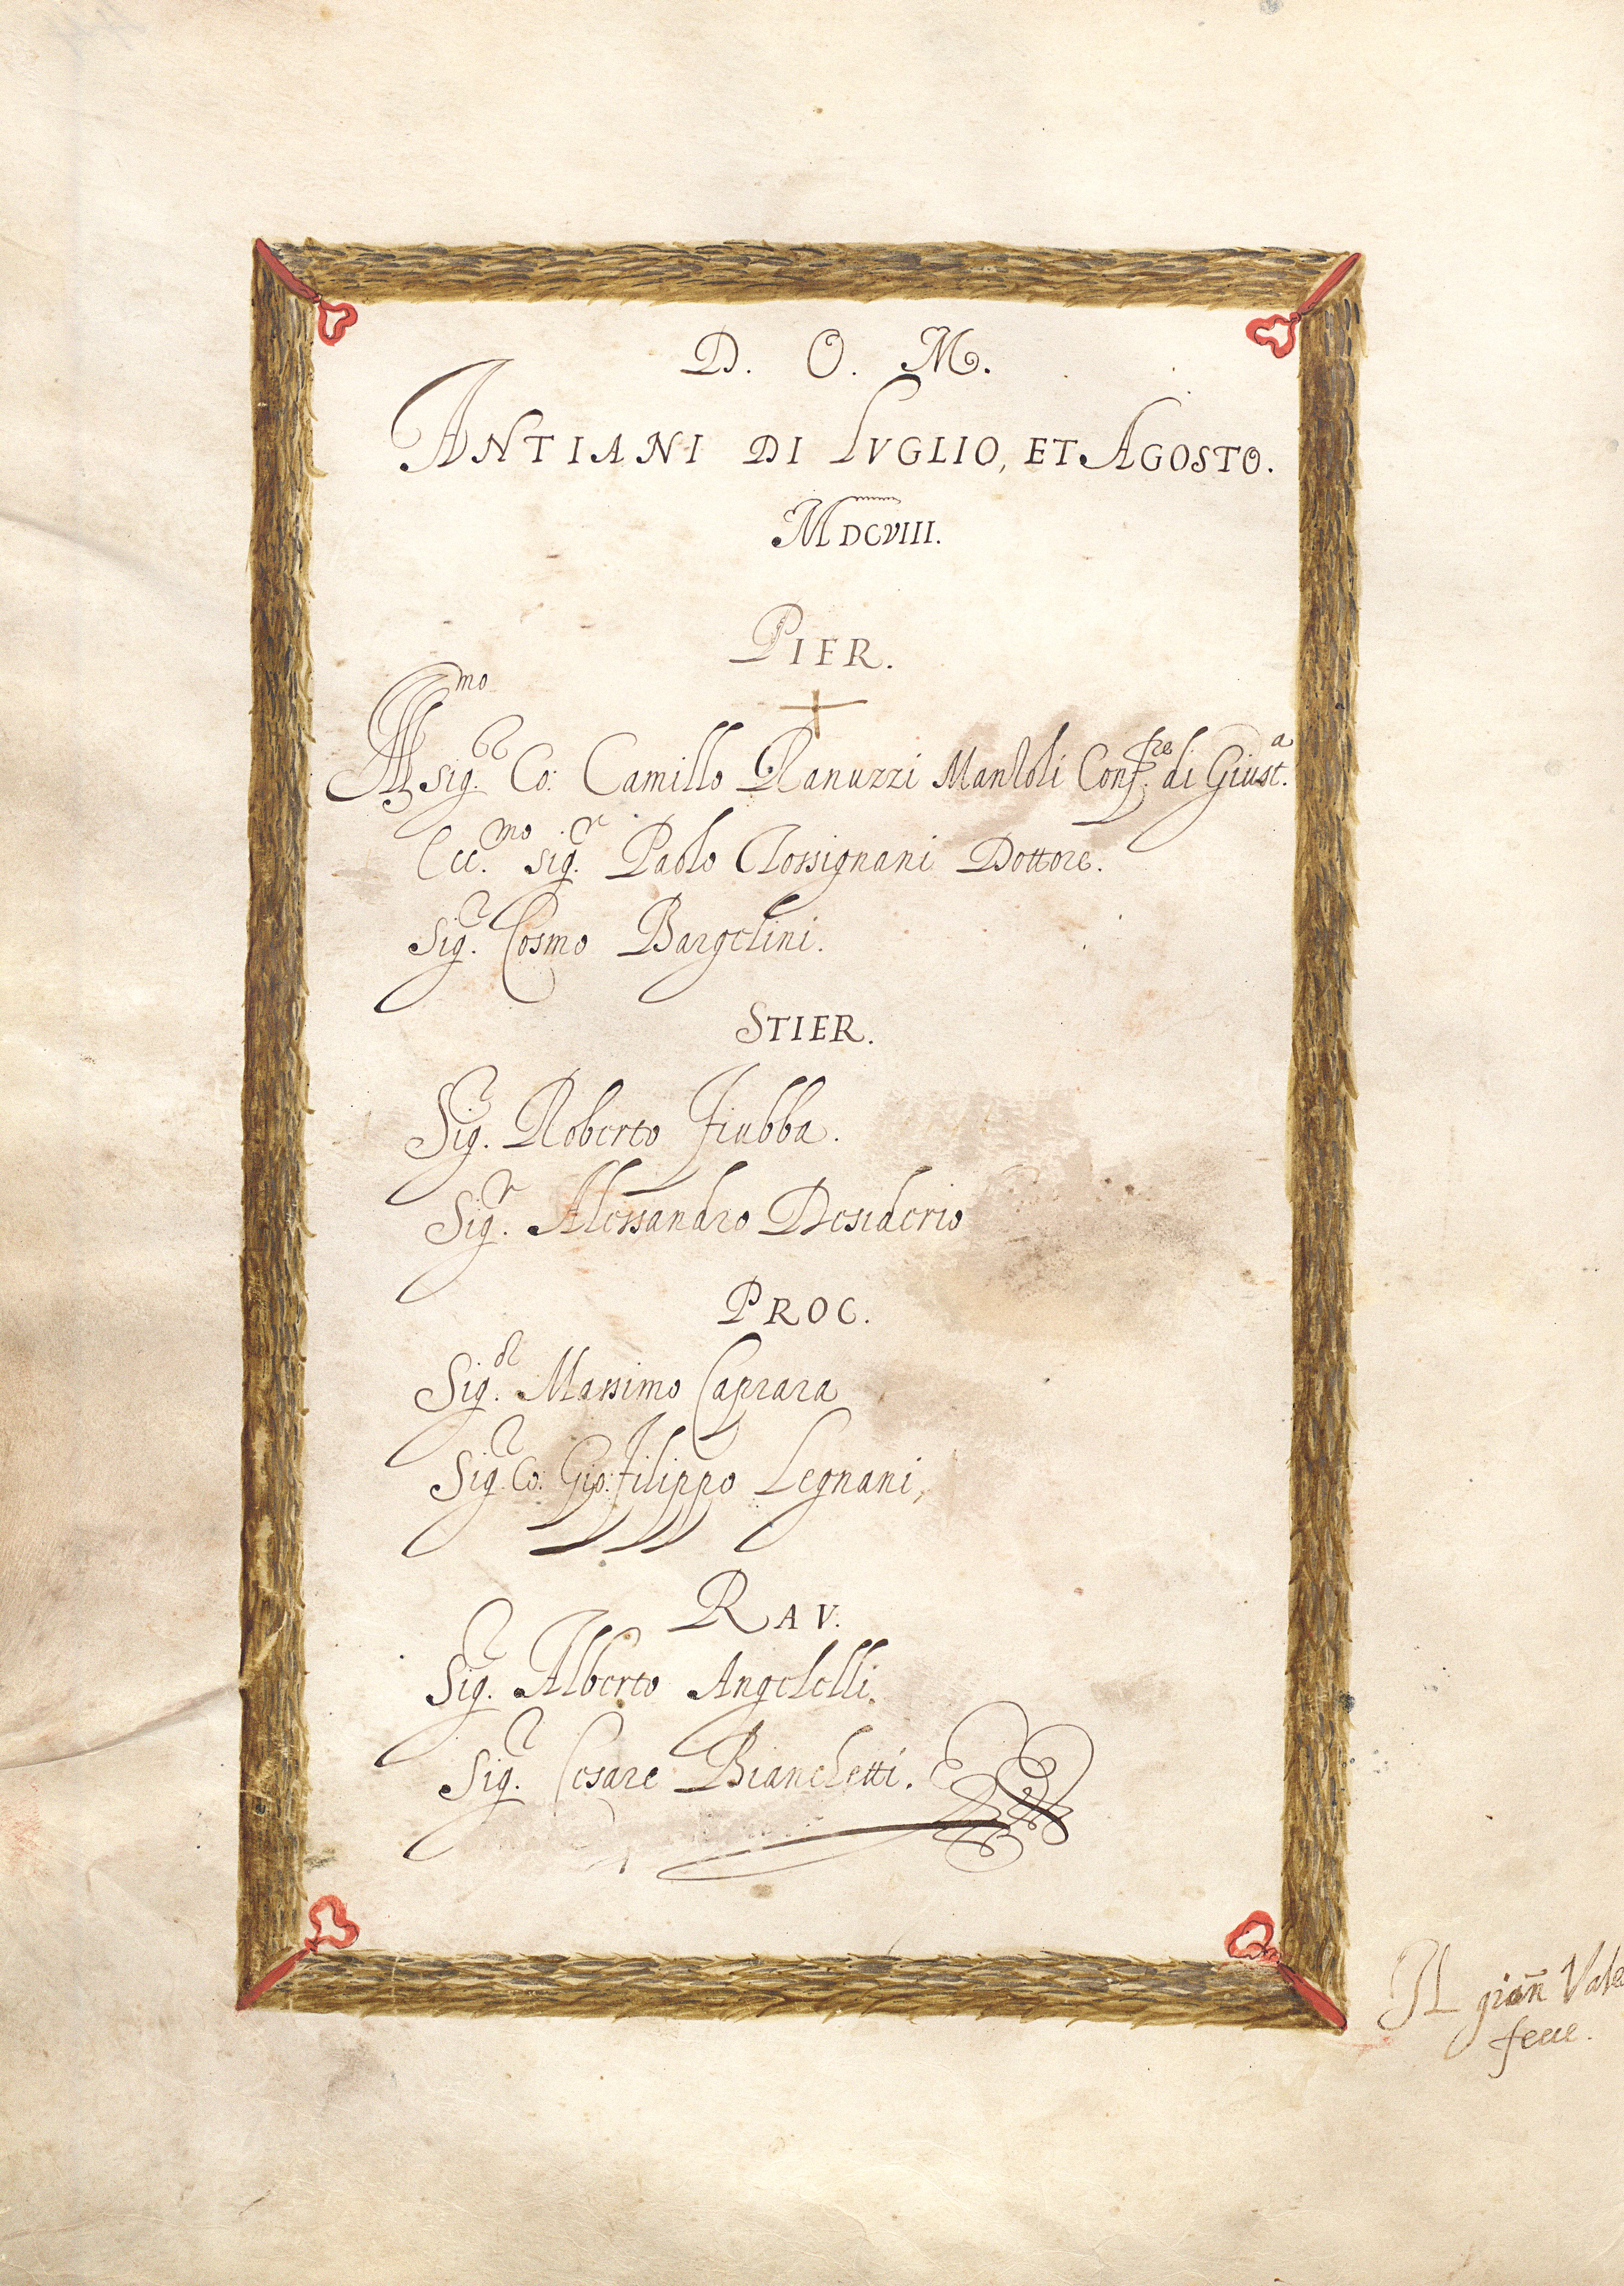 D. O. M.
ANTIANI DI LVGLIO, ET AGOSTO.
MDCVIII.
PIER.
Ill.mo Sig.r Co: Camillo Ranuzzi Manzoli Conf.re di Giust.a
Ecc.mo Sig.r Paolo Rossignani Dottore.
Sig.r Cosmo Bargelini.
STIER.
Sig.r Roberto Fiubba.
Sig.r Alessandro Desiderio
PROC.
Sig.r Massimo Caprara
Sig.r Co: Gio: Filippo Legnani,
RAV.
Sig.r Alberto Angelelli.
Sig.r Cesare Bianchetti.
Il
fece.